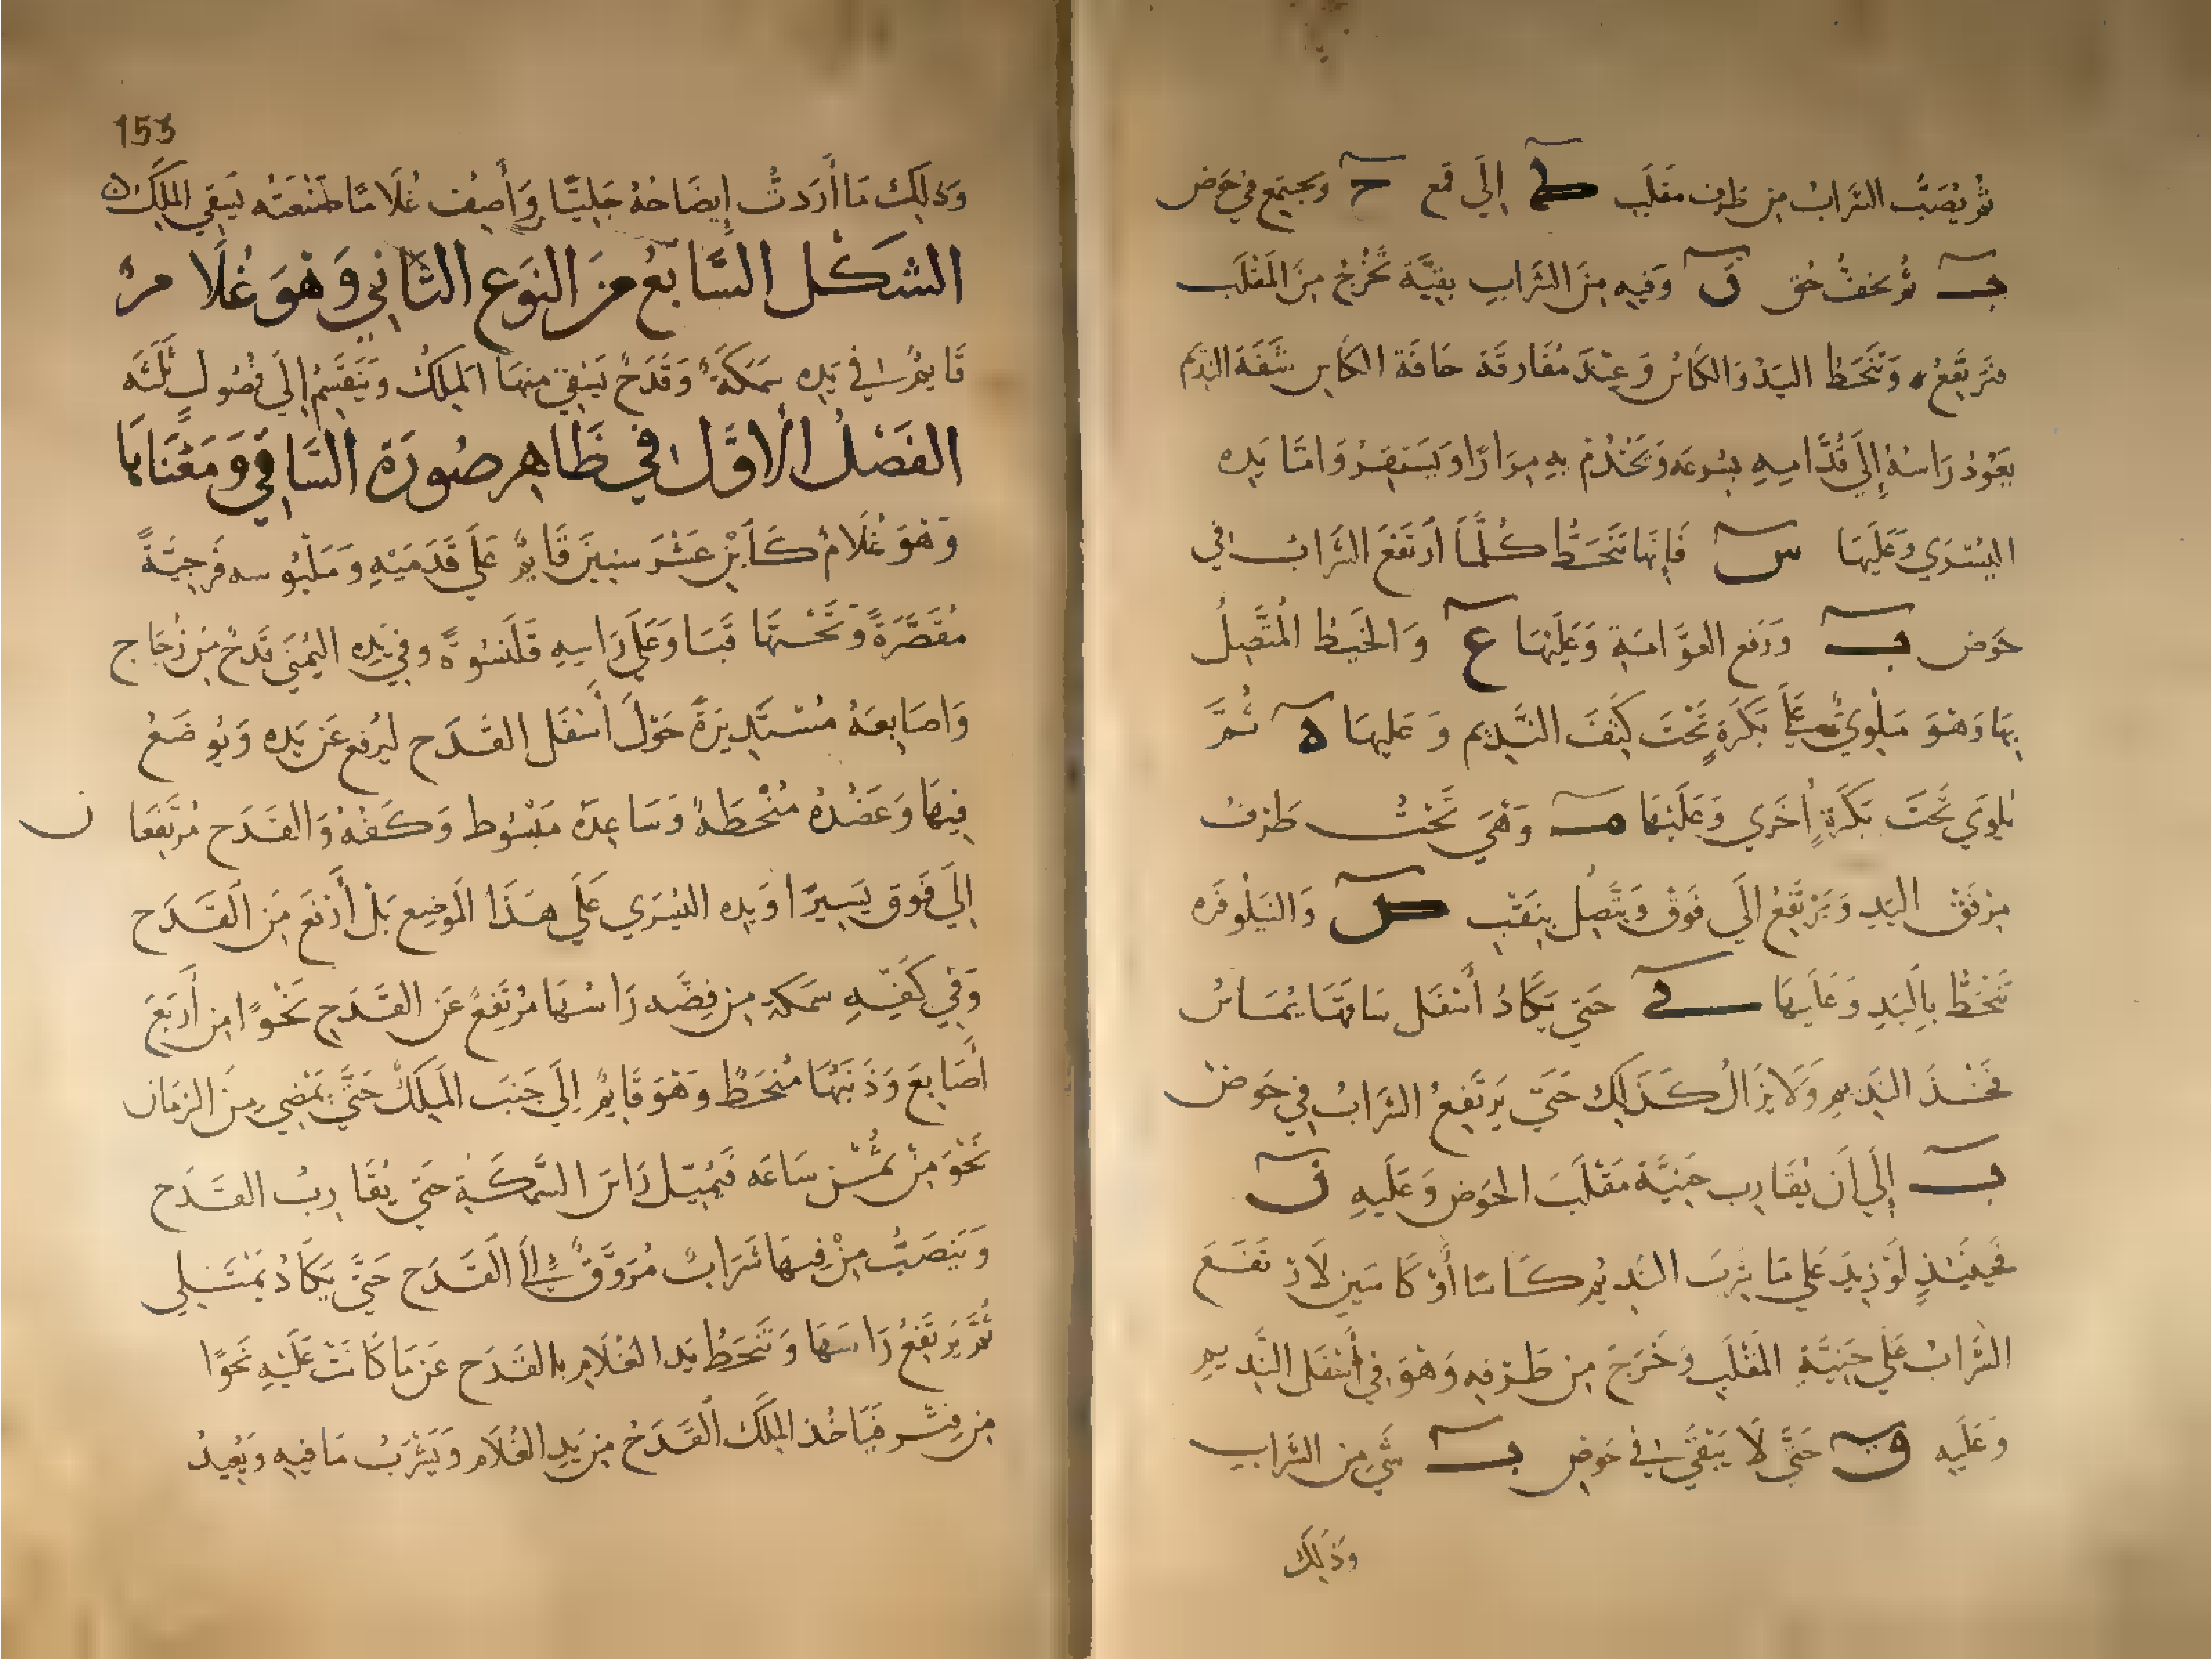 ثم يُصَبُّ الشَرابُ مِن طرف مقلَب ط إلَي قمع ح ويجتمع في حَوض
ب ثم يخفُّ حُق ف وَفيهِ مِنَ الشَرابِ بقيَّة تَخْرُجُ مِنَ المَقْلَب
فترتَفعُ وَتَنْحَطُ اليَدُ وَالكَاسُ وَعِنْدَ مُفَارقَة حَافَة الكَاسِ شَفَةَ النَدِيم
يَعُودُ رَاسُهُ إلَي قُدَّامِهِ بسُرعَه وَيَخْدُمُ بهِ مِرَارًا وَيَستَقِرُ وَامّا يَدِه
اليُسْرَي وَعَلَيهَا س فَإنّهَا تَنْحَطُّ كُلَّمَا اَرتَفَعَ الشَرَابُ في
حَوض ب وَرَفع العَوَّامَةِ وَعَلَيْهَا ع وَالخَيطُ المُتَّصِلُ
بِهَا وَهْوَ مَلْوِيٌّ عَلَي بَكَرَةٍ تَحْتَ كَتِفَ النَّدِيم وَعَليهَا ه ثُمَّ
يُلوَي تَحْتَ بَكَرَةٍ أُخرَي وَعَلَيْهَا م وَهْيَ تَحْتُ طَرفُ
مِرْفَقْ اليَدِ وَيَرْتَفِعُ الَي فَوقْ وَيَتَّصِل بِنَقْبِ ص وَالنَيلُوفَره
تَنْحَطُّ باليَدِ وَعَلَيهَا ك حَتي يَكَادُ أَسْفَل سَاقهَا يُمَاسُ
فَخْذَ النَدِيم وَلَا يَزَالُ كَذَلِك حَتَي يَرتَفِعُ الشَرَابُ في حَوضْ
ب إلَي اَن يُقَارب حَنِيَّة مَقْلَبَ الحَوض وَعَلَيهِ ف
فَحينَئذٍ لَوْ زِيدَ عَلي مَا شرِبَ النَدِيم كَاسًا أَوْ كَاسَين لَارْتَفَعَ
الشَرَابُ عَلَي حَنِيَّةِ المَقْلَب وَخَرَجَ مِن طَرفِهِ وَهْوَ في أَسْفَل النَدِيمِ
وَعَلَيهِ ق حَتَّي لَا يَبْقَي في حَوضِ ب شَي مِن الشَّرَابِ
وذَلِكَ
153
وَذلِكَ مَا أَرَدتُ إيضَاحُهُ جَلِيًّا وَأَصِفُ غُلَامًا صَنَعتُه يَسقي المَلِكْ
الشكل السَّابعُ مِنَ النَوع الثّاني وَهْوَ غُلَام
قَايِمٌ في يَدِه سَمَكَةٌ وَقَدَحٌ يَسْقي مِنهَا المَلِكُ وَيَنقَسِمُ إلَي فُصُولٍ ثَلَثَه
الفَصْلُ الأَوَّلُ في ظَاهِر صُورَة السَّاقي وَمَعْنَاهَا
وَهْوَ غُلَامٌ كَابْنِ عَشْرَ سِنينَ قَايِمٌ عَلَي قَدَمَيْهِ وَمَلبُوسه فَرَجيَّةً
مُقَصَّرَةً وَتَحْتهَا قَبَا وَعَلَي رَاسِهِ قَلَنسُوَةً وَفي يَدِه اليُمنَي قَدَحٌ مِن زُجَاج
وَاصَابِعَهُ مُسْتَدِيرَةً حَوْلَ أسْفَل القَدَح ليُرفع عَن يَدِه وَيُوضَعُ
فِيهَا وَعَضُدُهُ مُنْحَطَةً وَسَاعِدَهُ مَبْسُوط وَكَفُهُ وَالقَدَح مُرتَفِعَا
إلَي فَوق يَسِيرًا وَيدِه اليُسْرَي عَلَي هَذَا المَوضِع بَلْ أَرْفَعَ مِنَ القَدَح
وَفِي كَفِهِ سَمَكة مِن فِضَّه رَاسُهَا مُرْتَفِعٌ عَنِ القَدَحِ نَحْوًا مِن أَربَعَ
أَصَابعَ وَذَنَبهَا مُنحَطٌ وَهْوَ قَايِمٌ إلَي جَنبَ المَلِكُ حَتَّي يَمْضي مِنَ الزمَان
نَحْوَ مِنْ ثُمْن سَاعَه فَيَمِيل رَاسَ السَّمكَةِ حَتي يُقَاربُ القَدَح
وَيَنصَبُّ مِنْ فِيهَا شَرَابٌ مُرَوَّقٌ الَي القَدَح حَتَّي يَكَادُ يَمْتَلي
ثُمَّ يَرتَفِعُ رَاسَهَا وَتَنْحَطُ يَد الغُلَامِ بالقَدَح عَن مَا كَانَتْ عَلَيْهِ نَحوًا
مِن فِتر فَيَاخُذ المَلِكُ القَدَحُ مِن يَدِ الغُلَام وَيَشْرَبُ مَا فيهِ وَيُعِيدُ